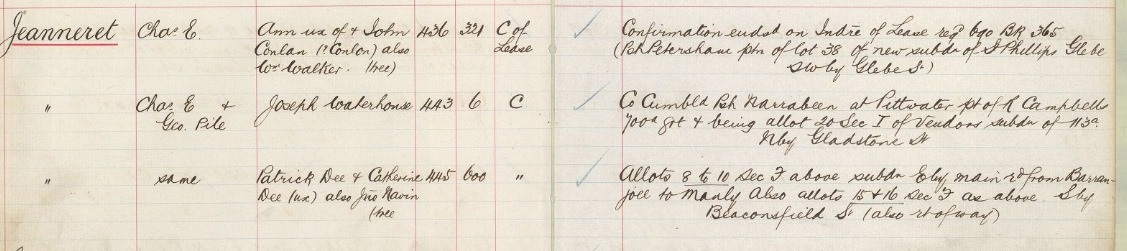 Jeanneret Chas. E. Ann ux of & John 436 321 C of Confirmation endsd on Indre of Lease regd 690 BK 365
Conlan (? Conlon) also Lease (Psh Petersham ptn of lot 38 of new subdn of St Phillips Glebe
Wm Walker. (tree) SW by Glebe St)
" Chas E & Joseph Waterhouse 443 6 C Co Cumbld Psh Narrabeen at Pittwater pt of R Campbells
Geo. Pile 700a grt & being allot 20 Sec I of Vendors subdn of 113a.
N by Gladstone St
" same Patrick Dee & Catherine 445 600 " Allots 8 to 10 Sec F above subdn E by main rd from Barran-
Dee (ux) also Jno Navin joei to Manly Also allots 15 & 16 Sec F as above. S by
(tree Beaconsfield St (also rt of way)